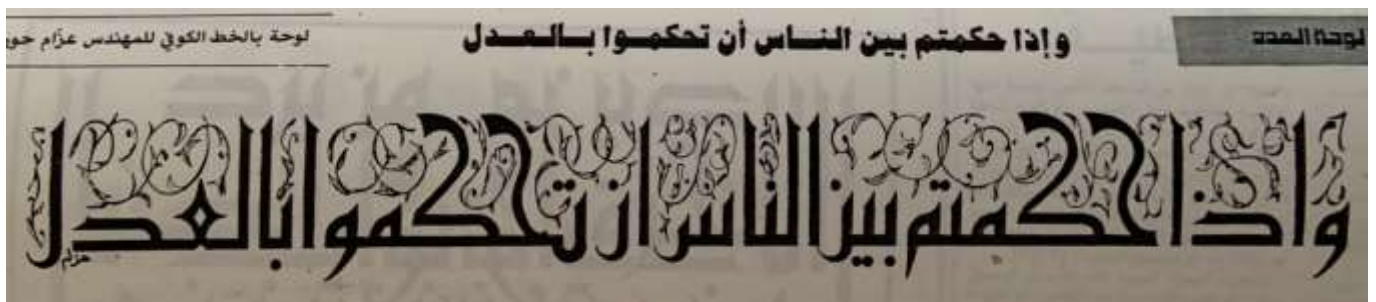 لوحة العدد
وإذا حكمتم بين الناس أن تحكموا بالعدل
لوحة بالخط الكوفي للمهندس عزّام
واذا حكمتم بين الناس ان تحكموا بالعدل
عزام